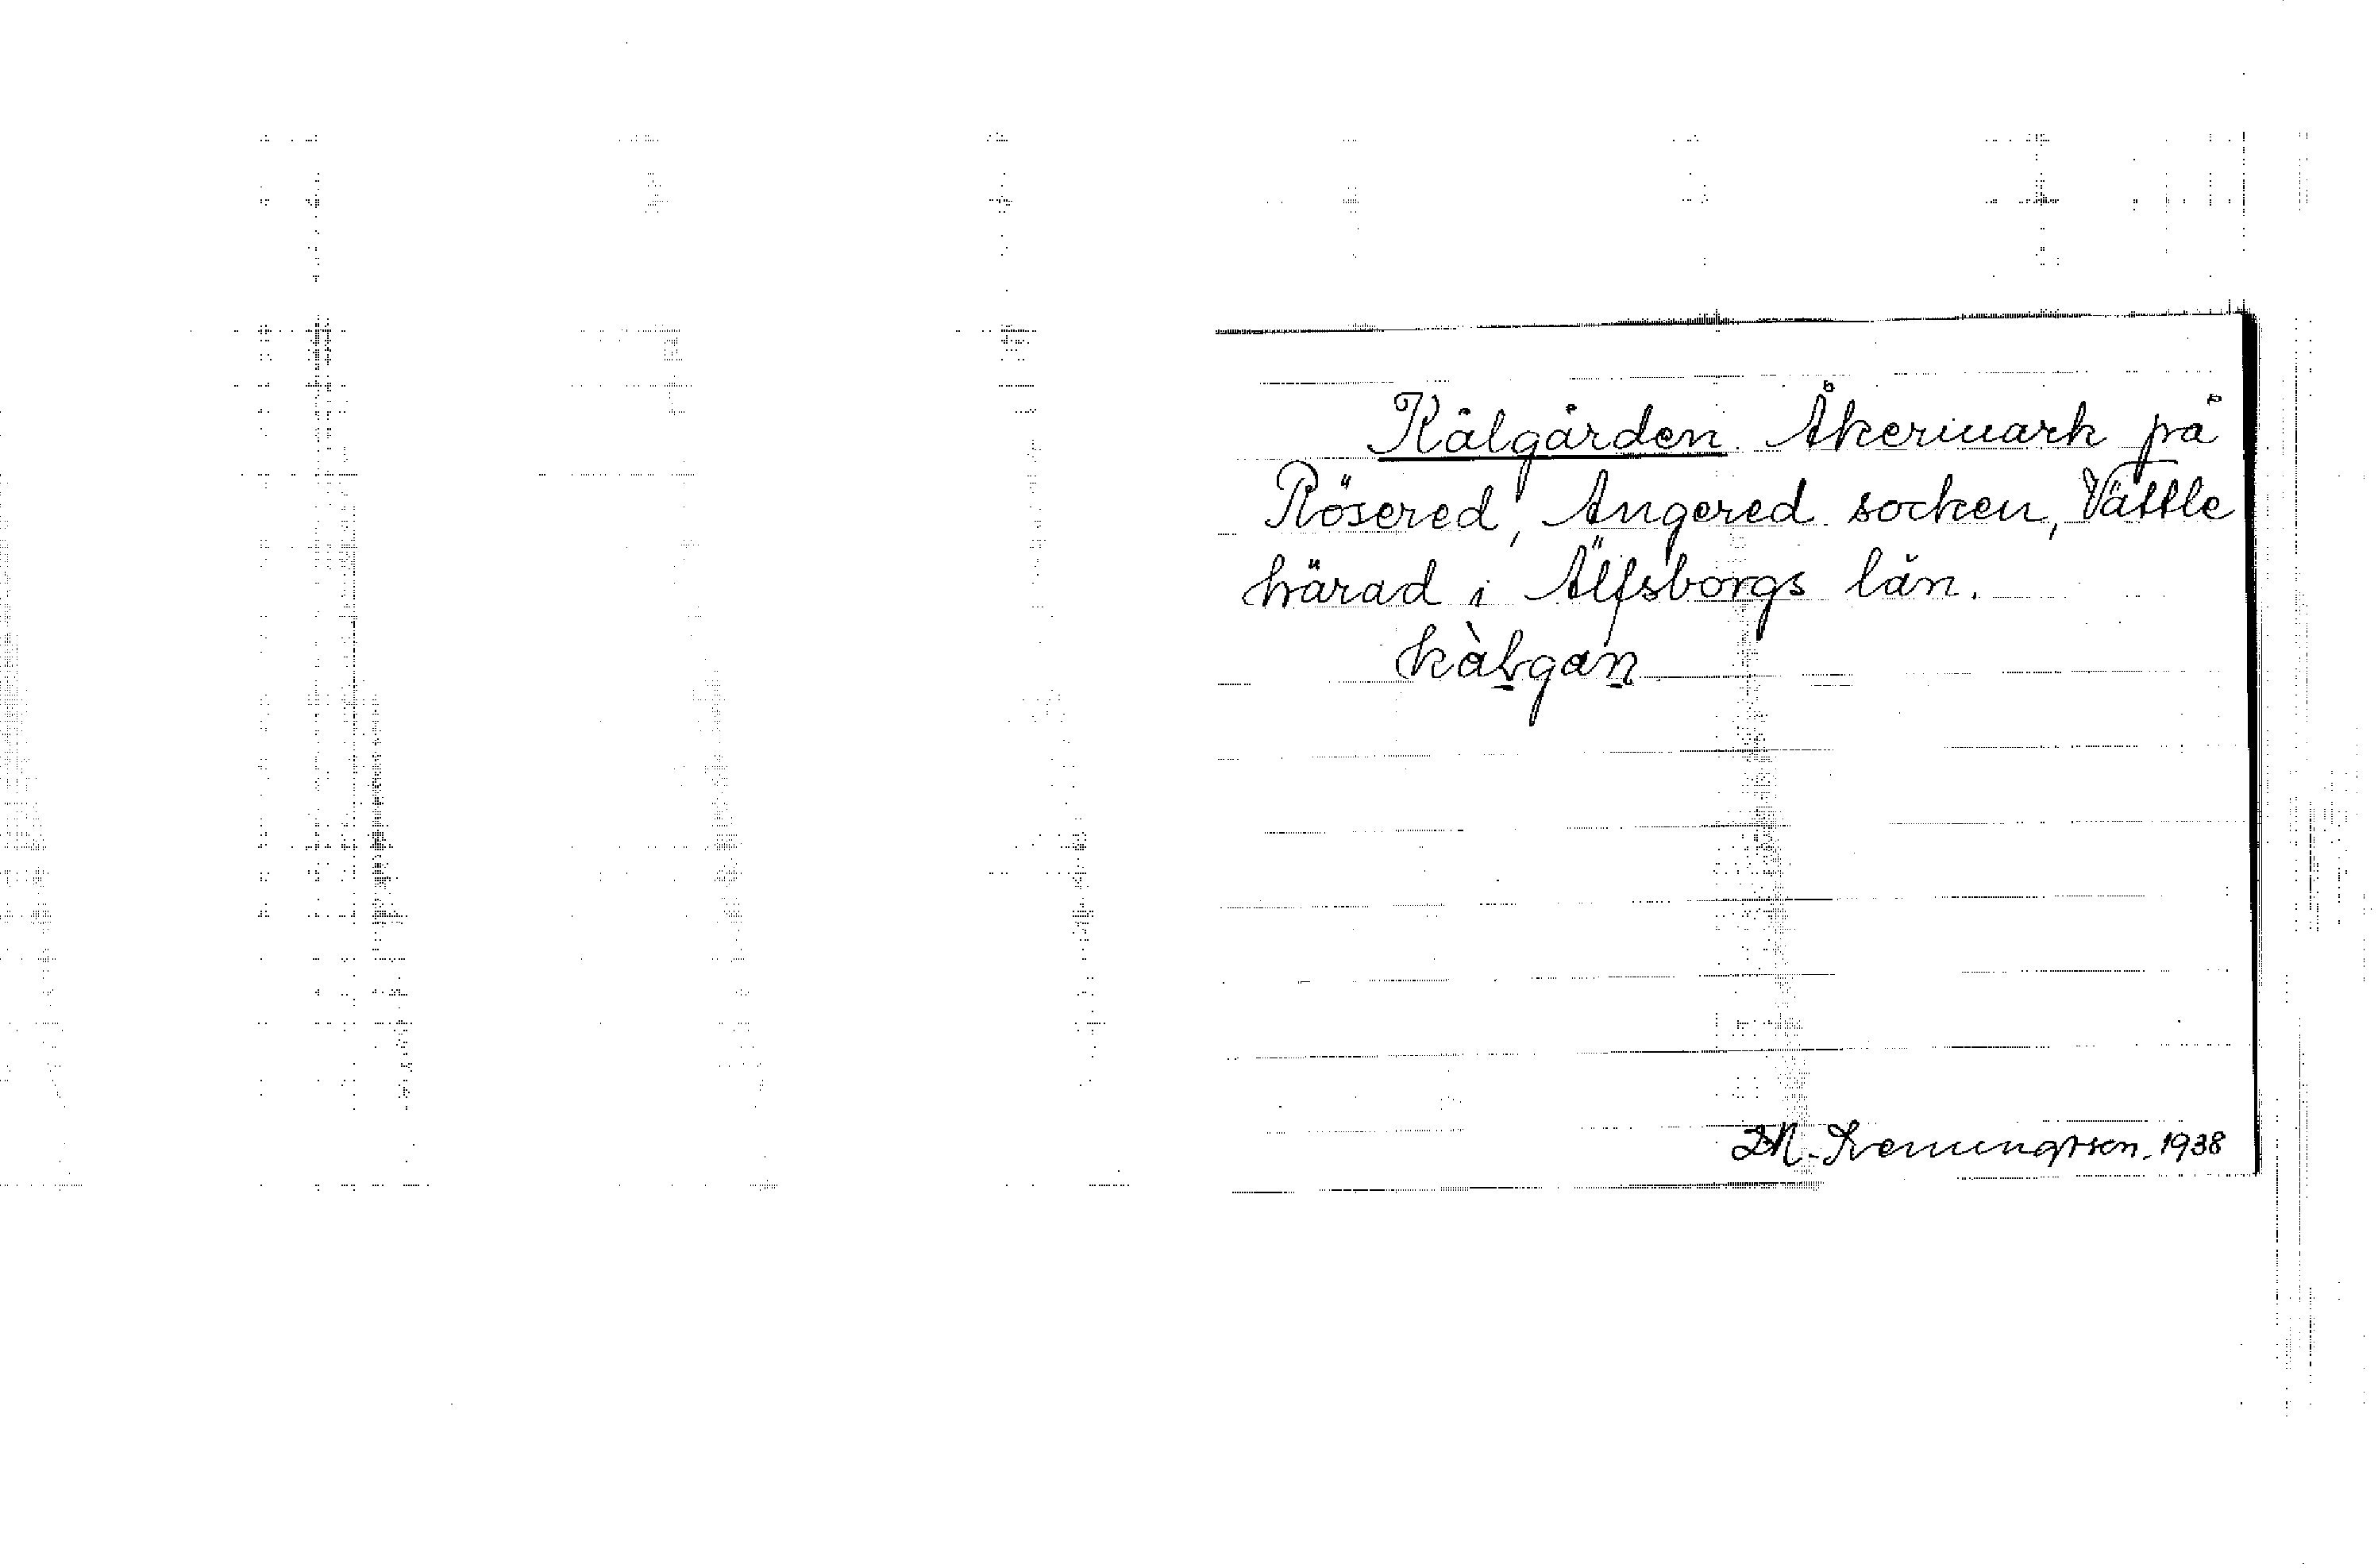 Kålgården. Åkermark på
Rösered, Angered socken, Vättle
härad i Älfsborgs län.
kàlgan
1938